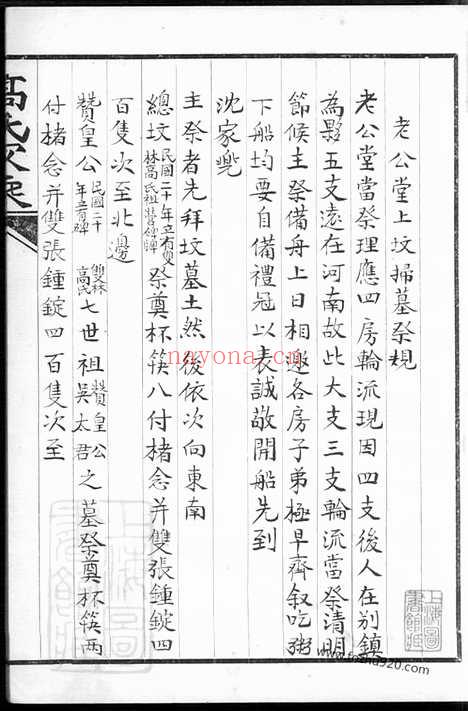 老公堂上坟掃墓祭規
老公堂當祭理應四房輪流現因四支後人在别鎮
為夥五支遠在河南故此大支三支輪流當祭清明
節候主祭備舟上日相邀各房子弟極早齊叙吃粥
下船均要自備禮冠以表誠敬開船先到
沈家兜
主祭者先拜坟墓土然後依次向東南
總坟民國二十年立有雙林高氏祖塋碑祭奠杯筷八付楮念并雙張錘錠四
百隻次至北邊
贊皇公民國二十年立有碑雙林高氏七世祖贊皇公吳太君之墓祭奠杯筷两
付楮念并雙張錘錠四百隻次至
高氏家乘
上海圖書館藏
nayona.cn
foshu920.com